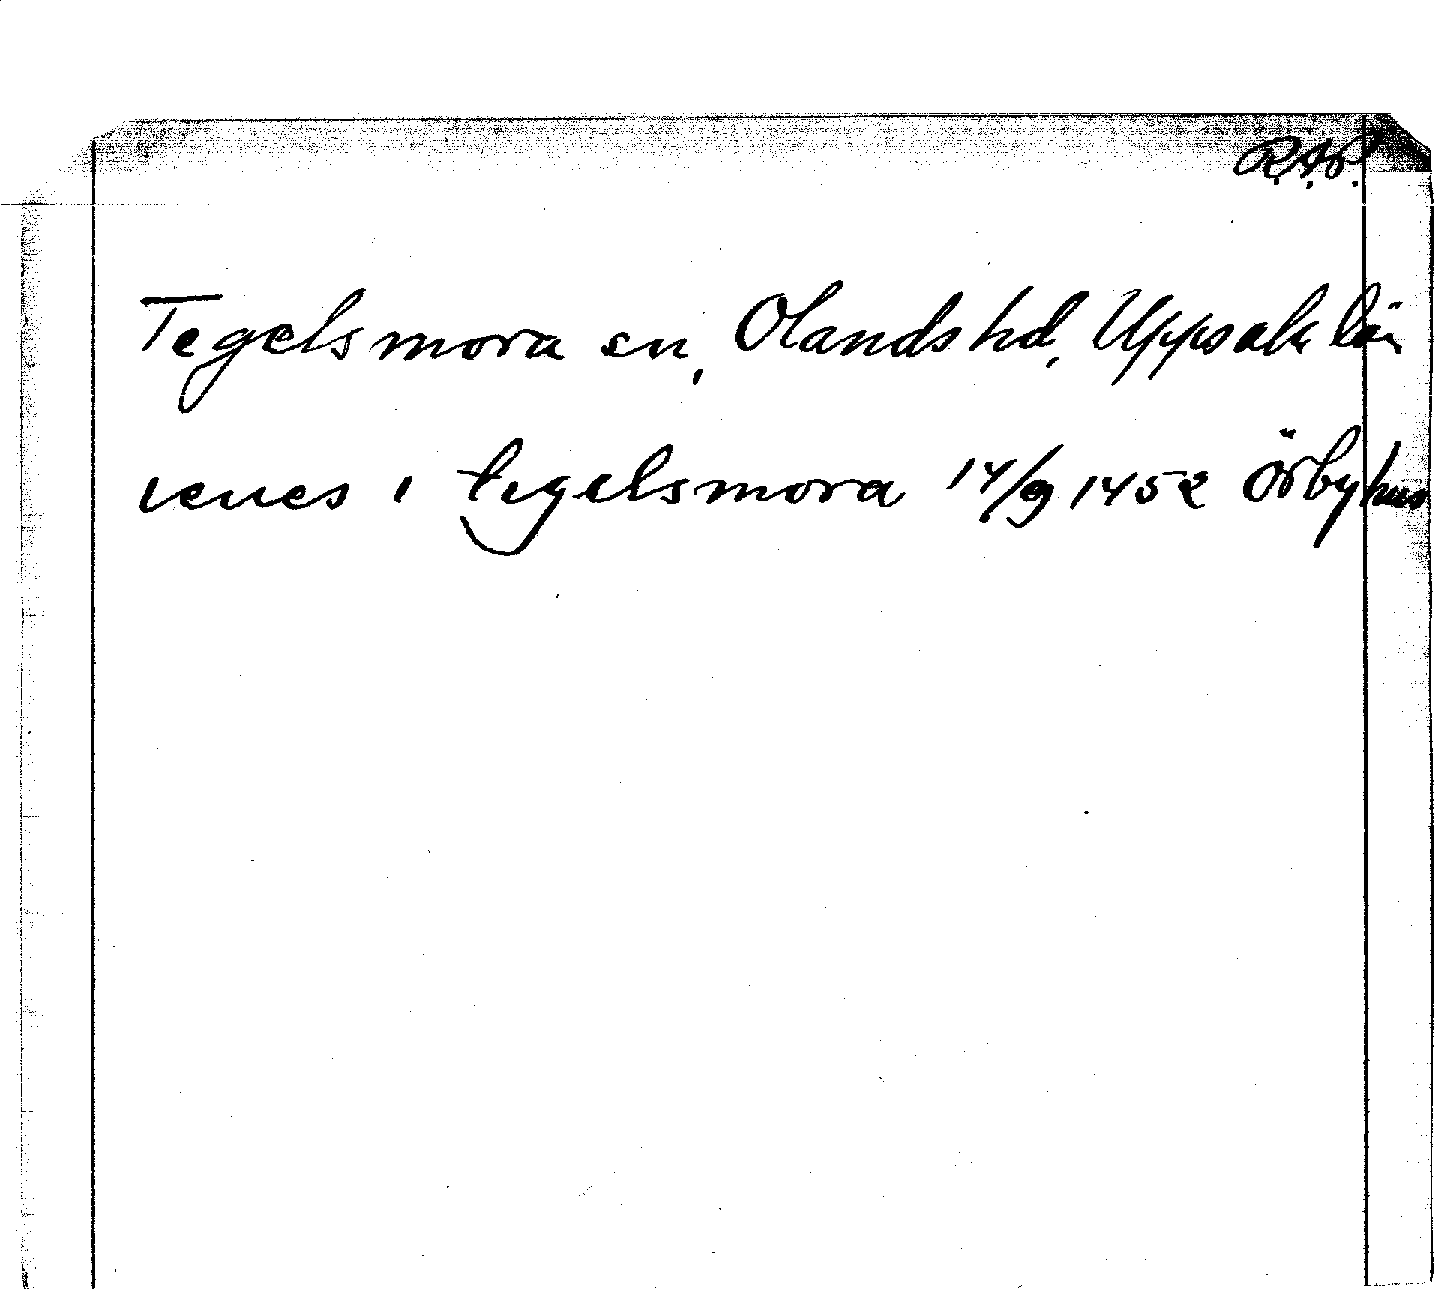 R.A.P.
Tegelsmora sn, Olands hd, Uppsala län
venes i tegelsmora 14/9 1452 Örbyhus